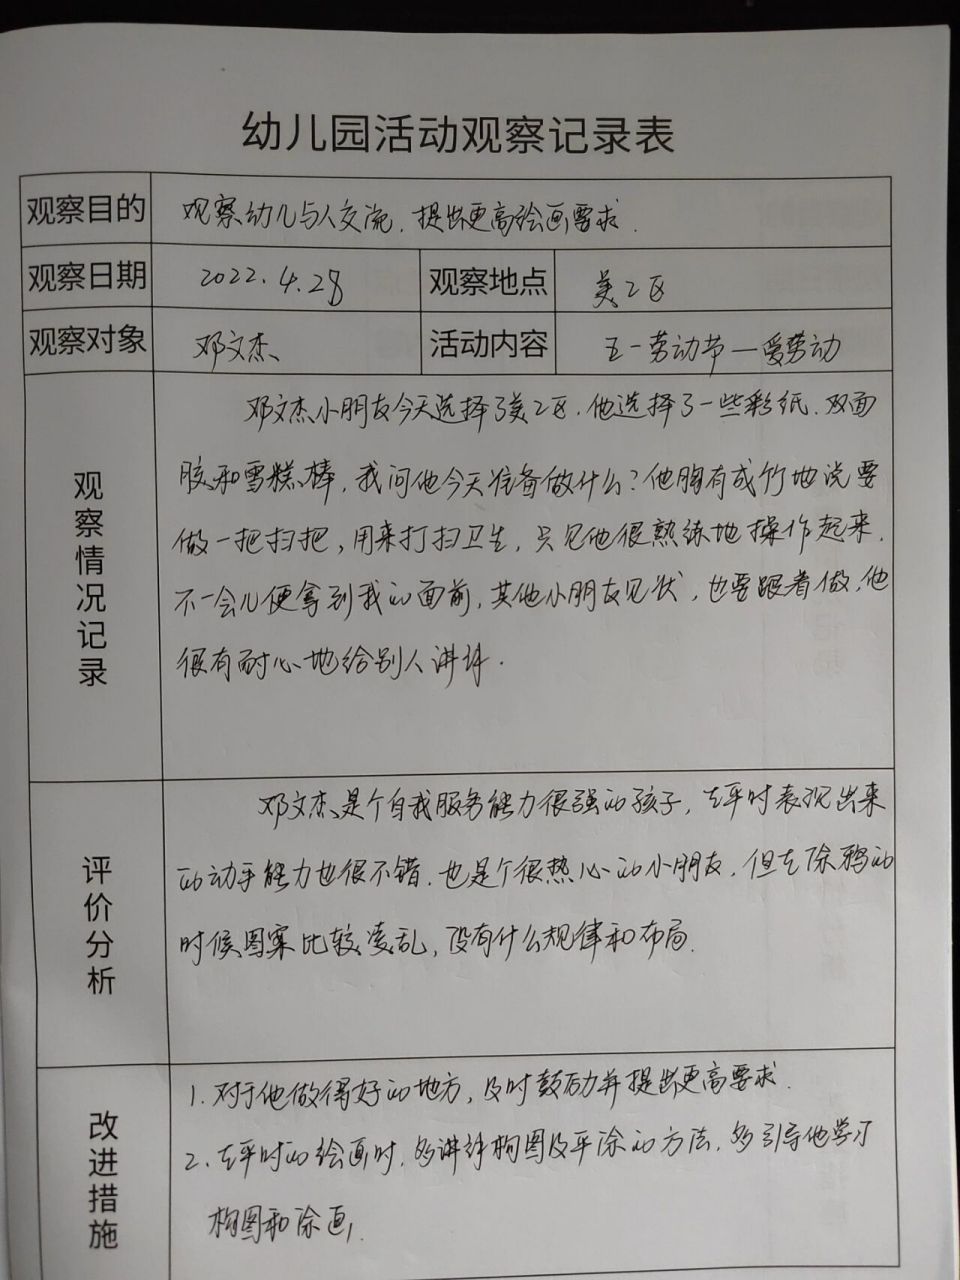 幼儿园活动观察记录表
观察目的 观察幼儿与人交流,提出更高绘画要求.
观察日期 2022.4.28 观察地点 美工区
观察对象 邓文杰 活动内容 五一劳动节—爱劳动
观察情况记录
邓文杰小朋友今天选择了美工区.他选择了一些彩纸.双面
胶和雪糕棒,我问他今天准备做什么?他胸有成竹地说要
做一把扫把,用来打扫卫生,只见他很熟练地操作起来.
不一会儿便拿到我的面前,其他小朋友见状,也要跟着做,他
很有耐心地给别人讲详.
评价分析
邓文杰是个自我服务能力很强的孩子,在平时表现出来
的动手能力也很不错.也是个很热心的小朋友,但在涂鸦的
时候图案比较凌乱,没有什么规律和布局.
改进措施
1.对于他做得好的地方,及时鼓励并提出更高要求.
2.在平时的绘画时,多讲详构图及平涂的方法,多引导他学习
构图和涂画.